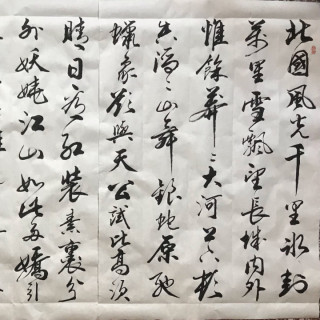 北國風光千里冰封
萬里雪飄望長城内外
惟餘莽〻大河上下頓
失滔〻山舞銀蛇原馳
蠟象欲與天公試比高須
晴日看紅裝素裹分
外妖嬈江山如此多嬌引